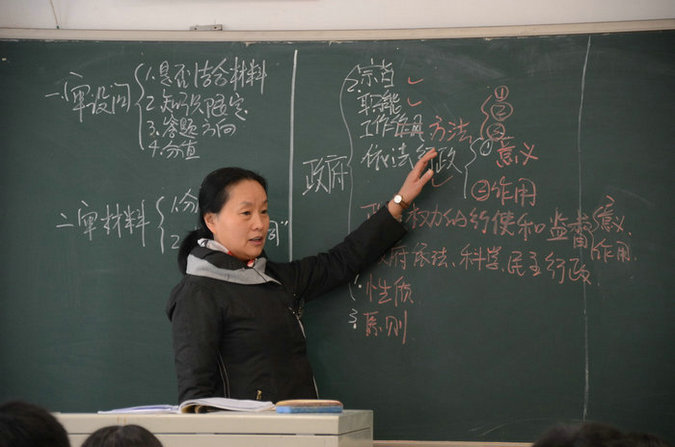 一、审设问
1.是否结合材料
2.知识限定
3.答题方向
4.分值
二审材料
1.分
2.
政府
2.宗旨
职能
工作作风 方法 ① ② ③
依法行政 ① 意义
②作用
权力的行使和监督 意义
作用
政府依法、科学、民主行政
1.性质
3.原则